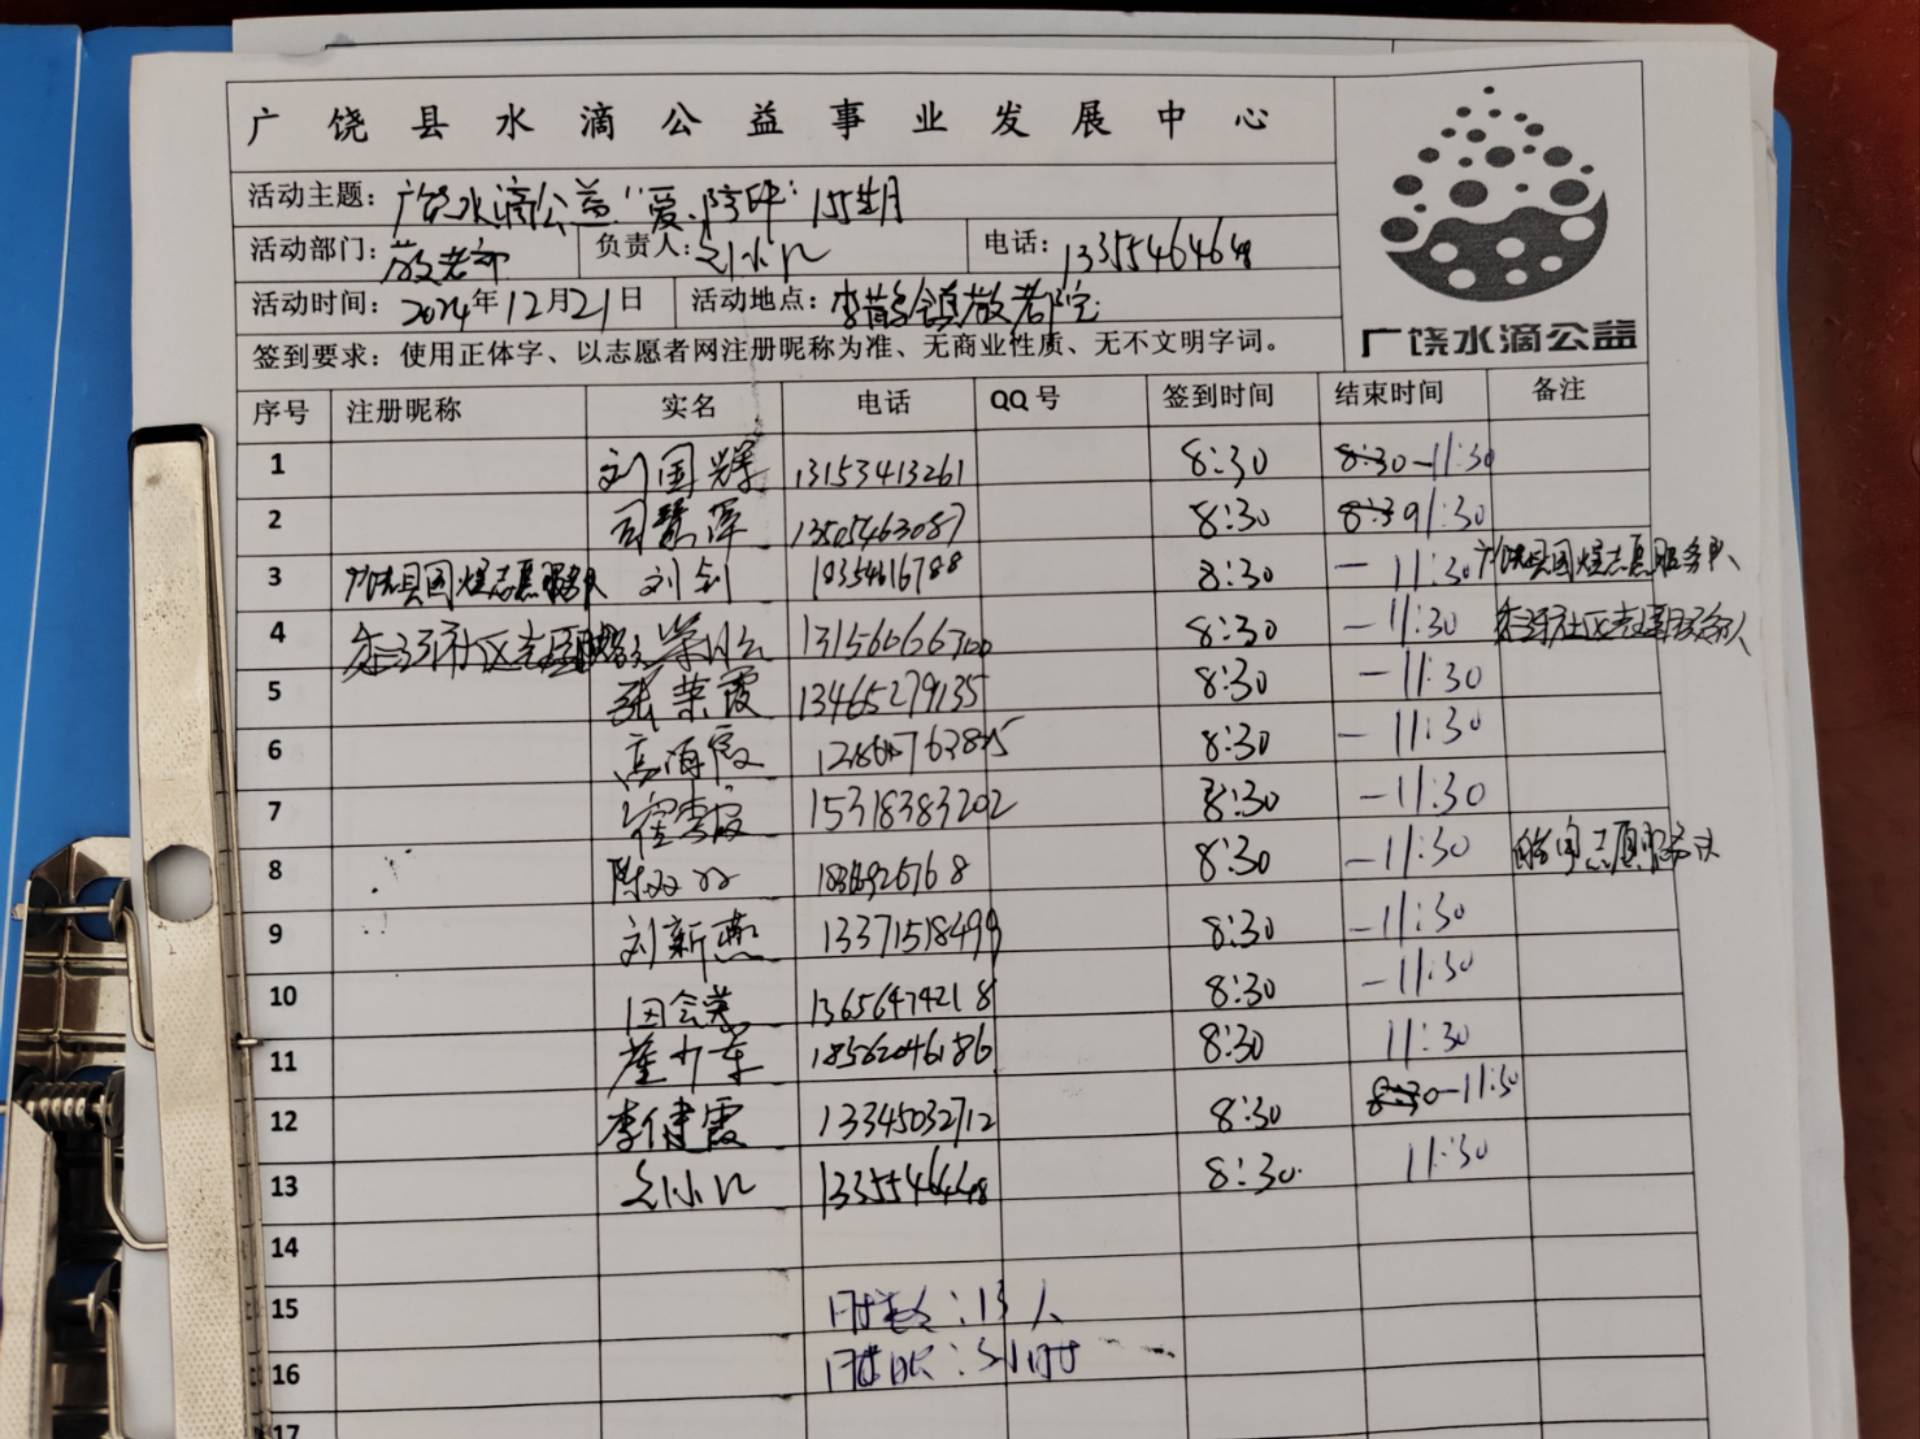 广饶县水滴公益事业发展中心
活动主题：广饶水滴公益"爱·陪伴"
活动部门：敬老部 负责人：刘小儿 电话：13355464648
活动时间：2024年12月21日 活动地点：李鹊镇敬老院
签到要求：使用正体字、以志愿者网注册昵称为准、无商业性质、无不文明字词。
广饶水滴公益
序号 注册昵称 实名 电话 QQ号 签到时间 结束时间 备注
1 刘国辉 13153413261 8:30 8:30-11:30
2 司慧萍 13505463087 8:30 11:30
3 志愿服务队 刘剑 8:30 - 11:30 志愿服务队
4 社区 8:30 - 11:30 社区
5 张荣霞 13465279135 8:30 - 11:30
6 高 霞 8:30 - 11:30
7 崔雪霞 15318383202 8:30 - 11:30
8 陈双双 8:30 - 11:30 志愿服务队
9 刘新燕 13371518499 8:30 - 11:30
10 田会英 13656474218 8:30 - 11:30
11 18562046186 8:30 11:30
12 李健霞 13345032712 8:30 8:30-11:30
13 刘小儿 13355464648 8:30 11:30
14
15 ：13人
16 ：3小时
17